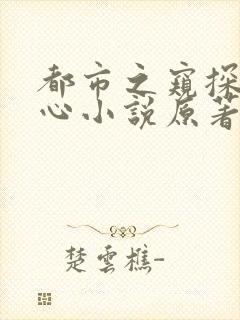 都市之窺探
心小說原著
楚雲樵-